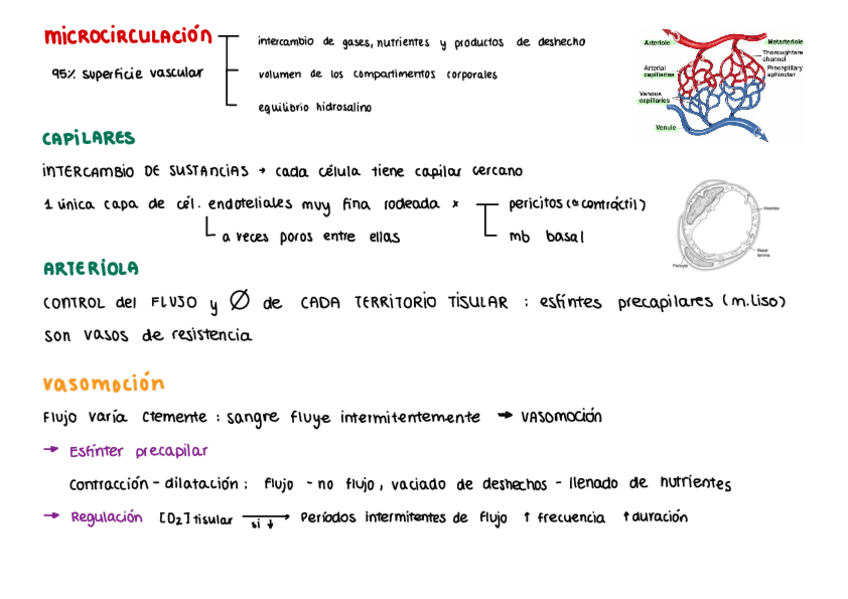 microcirculación
intercambio de gases, nutrientes y productos de deshecho
95% superficie vascular
volumen de los compartimentos corporales
equilibrio hidrosalino
Arteriole
Metarteriole
Thoroughfare channel
Arterial capillaries
Precapillary sphincter
Venous capillaries
Venule
CAPILARES
INTERCAMBIO DE SUSTANCIAS → cada célula tiene capilar cercano
1 única capa de cél. endoteliales muy fina rodeada x
pericitos (☆ contráctil)
a veces poros entre ellas
mb basal
Vesicles
Basal lamina
Pericyte
ARTERIOLA
CONTROL del FLUJO y Ø de CADA TERRITORIO TISULAR : esfíntes precapilares (m.liso)
son vasos de resistencia
vasomoción
Flujo varía ctemente : sangre fluye intermitentemente → VASOMOCIÓN
→ Esfínter precapilar
Contracción - dilatación : flujo - no flujo, vaciado de deshechos - llenado de nutrientes
→ Regulación [O2] tisular si ↓ → Períodos intermitentes de flujo ↑ frecuencia ↑ duración